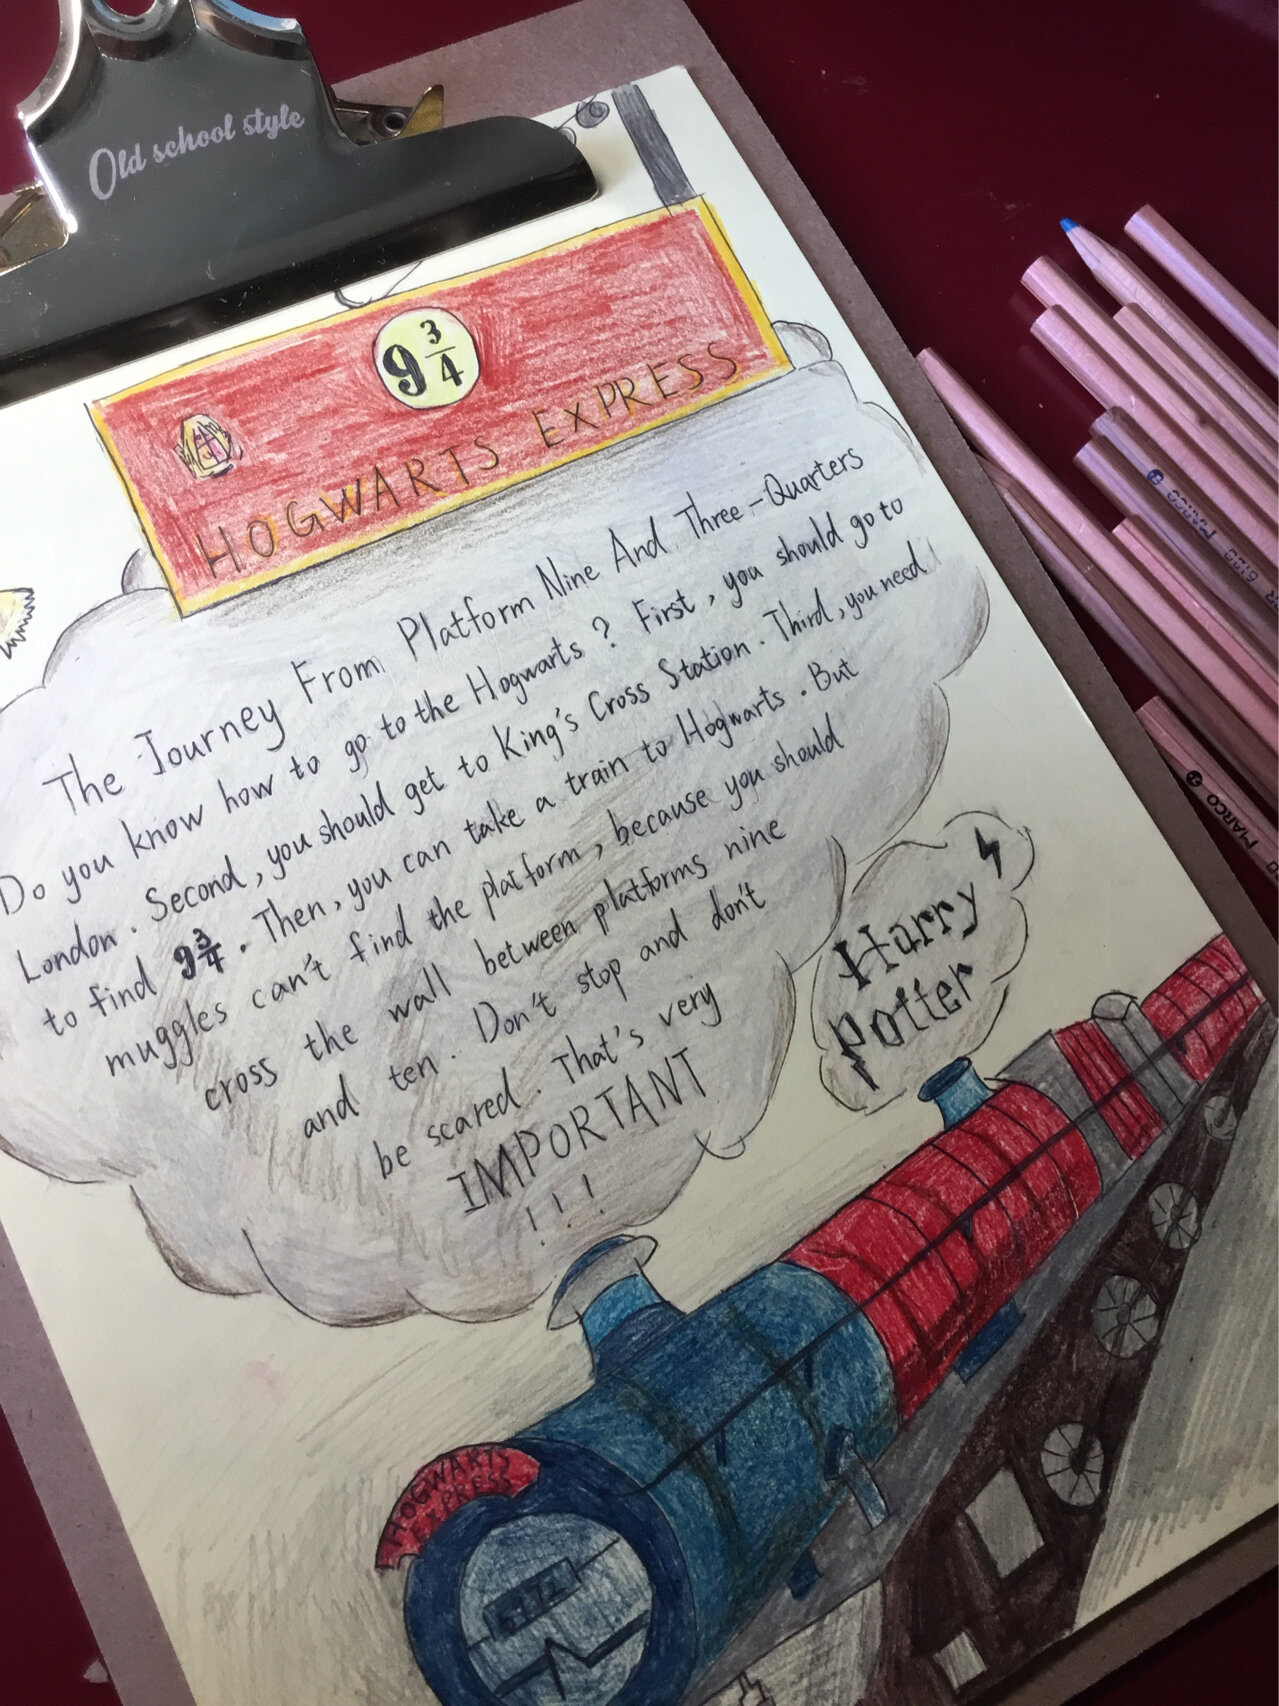 Old school style
9 3/4
HOGWARTS EXPRESS
The Journey From Platform Nine And Three-Quarters
Do you know how to go to the Hogwarts? First, you should go to
London. Second, you should get to King's Cross Station. Third, you need
to find 9 3/4. Then, you can take a train to Hogwarts. But
muggles can't find the platform, because you should
cross the wall between platforms nine
and ten. Don't stop and don't
be scared. That's very
IMPORTANT
!!!
Harry
Potter
HOGWARTS
EXPRESS
MARCO
MARCO